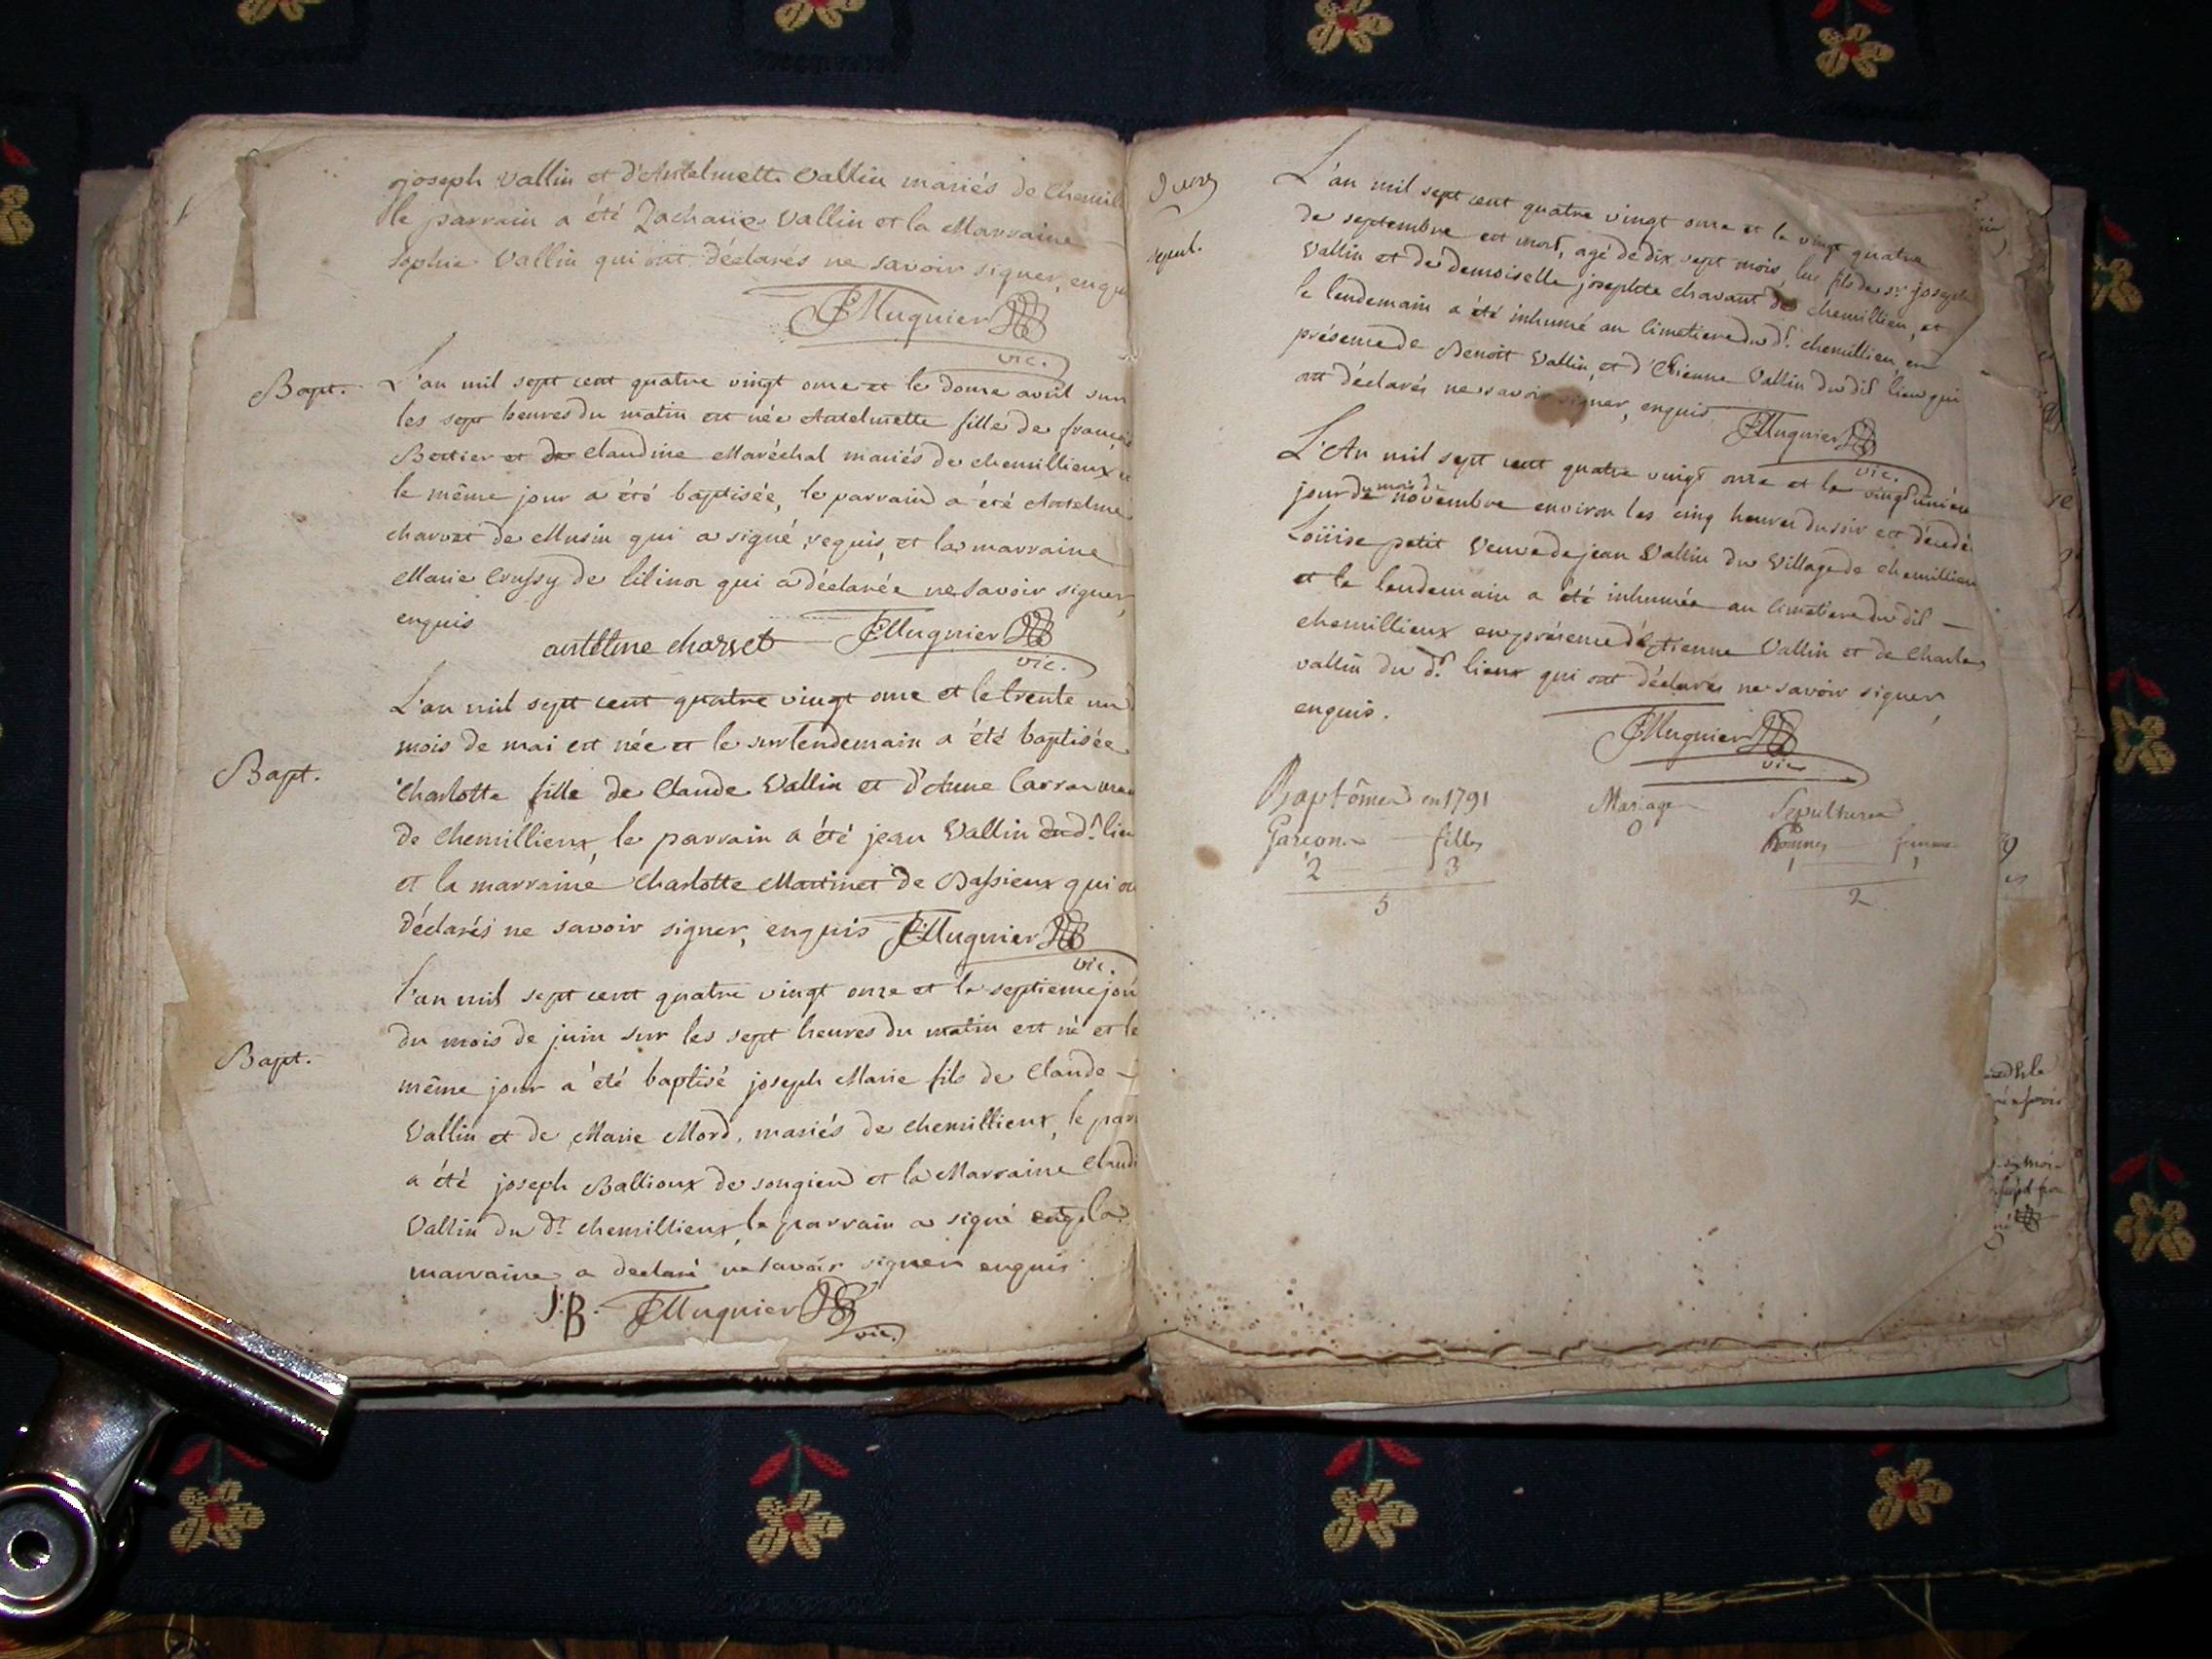 joseph Vallin et d'Antelmette Vallin mariés de Chemil
le parrain a été Zacharie Vallin et la Marraine
Sophie Vallin qui ont déclarés ne savoir signer, enquis
Mugnier
vic.
Bapt.
L'an mil sept cent quatre vingt onze et le douze avril sur
les sept heures du matin est née Antelmette fille de françois
et de Claudine Maréchal mariés de chemillieux et
le même jour a été baptisée, le parrain a été Antelme
charvet de Musin qui a signé, requis, et la marraine
Marie Crussy de lilinor qui a déclarée ne savoir signer,
enquis
antelme charvet Mugnier
vic.
Bapt.
L'an mil sept cent quatre vingt onze et le trente un
mois de mai est née et le surlendemain a été baptisée
Charlotte fille de Claude Vallin et d'Anne
de Chemillieux, le parrain a été jean Vallin du dt. lieu
et la marraine Charlotte Martinet de Bassieux qui
déclarés ne savoir signer, enquis Mugnier
vic.
Bapt.
L'an mil sept cent quatre vingt onze et le septieme jou
du mois de juin sur les sept heures du matin est né et le
même jour a été baptisé joseph Marie fils de Claude
Vallin et de Marie Mord, mariés de chemillieux, le par
a été joseph Ballioux de songieu et la Marraine Claudi
Vallin du dt. chemillieux, le parrain a signé et la
marraine a declaré ne savoir signer enquis
J:B. Mugnier
vic.
sepul.
L'an mil sept cent quatre vingt onze et le vingt quatre
de septembre est mort, agé de dix sept mois, fils de sr. joseph
Vallin et de demoiselle josephte Chavant de chemillieu, et
le lendemain a été inhumé au cimetiere du dt. chemillieu, en
présence de Benoit Vallin, et d'Etienne Vallin du dit lieu qui
ont déclarés ne savoir signer, enquis Mugnier
vic.
L'An mil sept cent quatre vingt onze et le vingt unieme
jour du mois de novembre environ les cinq heures du soir est décedée
Loüise petit Veuve de jean Vallin du Village de chemillieu
et le lendemain a été inhumée au cimetiere du dit
chemillieux en présence d'étienne Vallin et de Charles
vallin du dt. lieux qui ont déclarés ne savoir signer,
enquis.
Mugnier
vic
Baptêmes en 1791 Mariage Sepultures
Garçons filles 0 hommes femmes
2 3 1 1
5 2